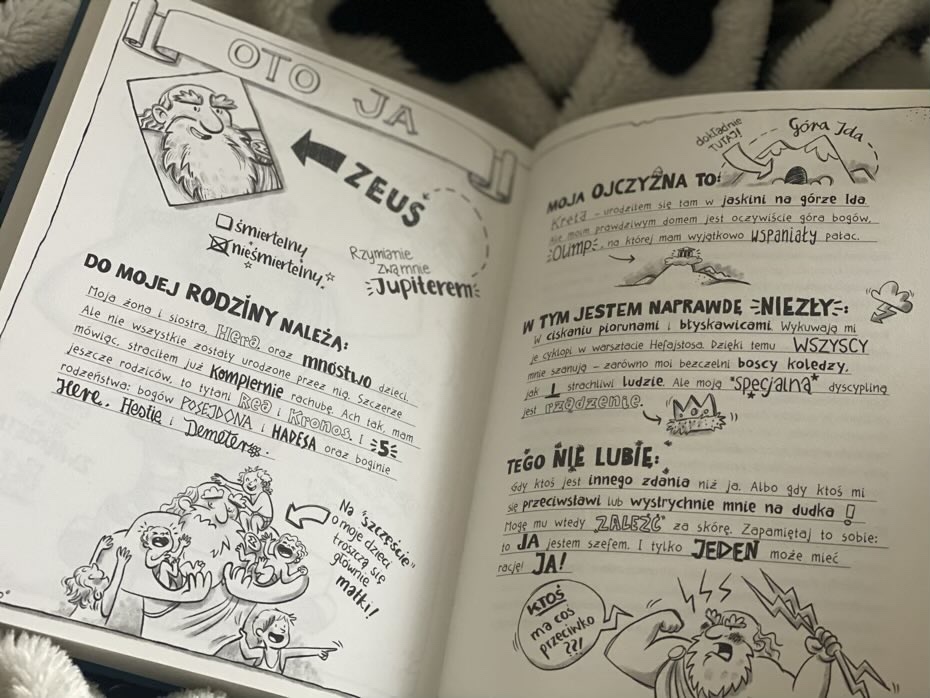 OTO JA
ZEUS
śmiertelny
nieśmiertelny
Rzymianie
zwą mnie
Jupiterem
DO MOJEJ RODZINY NALEŻĄ:
Moja żona i siostra, Hera oraz mnóstwo dzieci.
Ale nie wszystkie zostały urodzone przez nią. Szczerze
mówiąc, straciłem już kompletnie rachubę. Ach tak, mam
jeszcze rodziców, to tytani Rea i Kronos. I 5
rodzeństwa: bogów POSEJDONA i HADESA oraz boginie
Herę, Hestię i Demeter.
Na "szczęście"
o moje dzieci
troszczą się
głównie
matki!
dokładnie
TUTAJ!
Góra Ida
MOJA OJCZYZNA TO:
Kreta – urodziłem się tam w jaskini na górze Ida.
Ale moim prawdziwym domem jest oczywiście góra bogów,
Olimp, na której mam wyjątkowo wspaniały pałac.
W TYM JESTEM NAPRAWDĘ NIEZŁY:
W ciskaniu piorunami i błyskawicami. Wykuwają mi
je cyklopi w warsztacie Hefajstosa. Dzięki temu WSZYSCY
mnie szanują – zarówno moi bezczelni boscy koledzy,
jak I strachliwi ludzie. Ale moją "specjalną" dyscypliną
jest rządzenie.
TEGO NIE LUBIĘ:
Gdy ktoś jest innego zdania niż ja. Albo gdy ktoś mi
się przeciwstawi lub wystrychnie mnie na dudka!
Mogę mu wtedy ZALEŹĆ za skórę. Zapamiętaj to sobie:
to JA jestem szefem. I tylko JEDEN może mieć
rację! JA!
KTOŚ
ma coś
przeciwko
??!